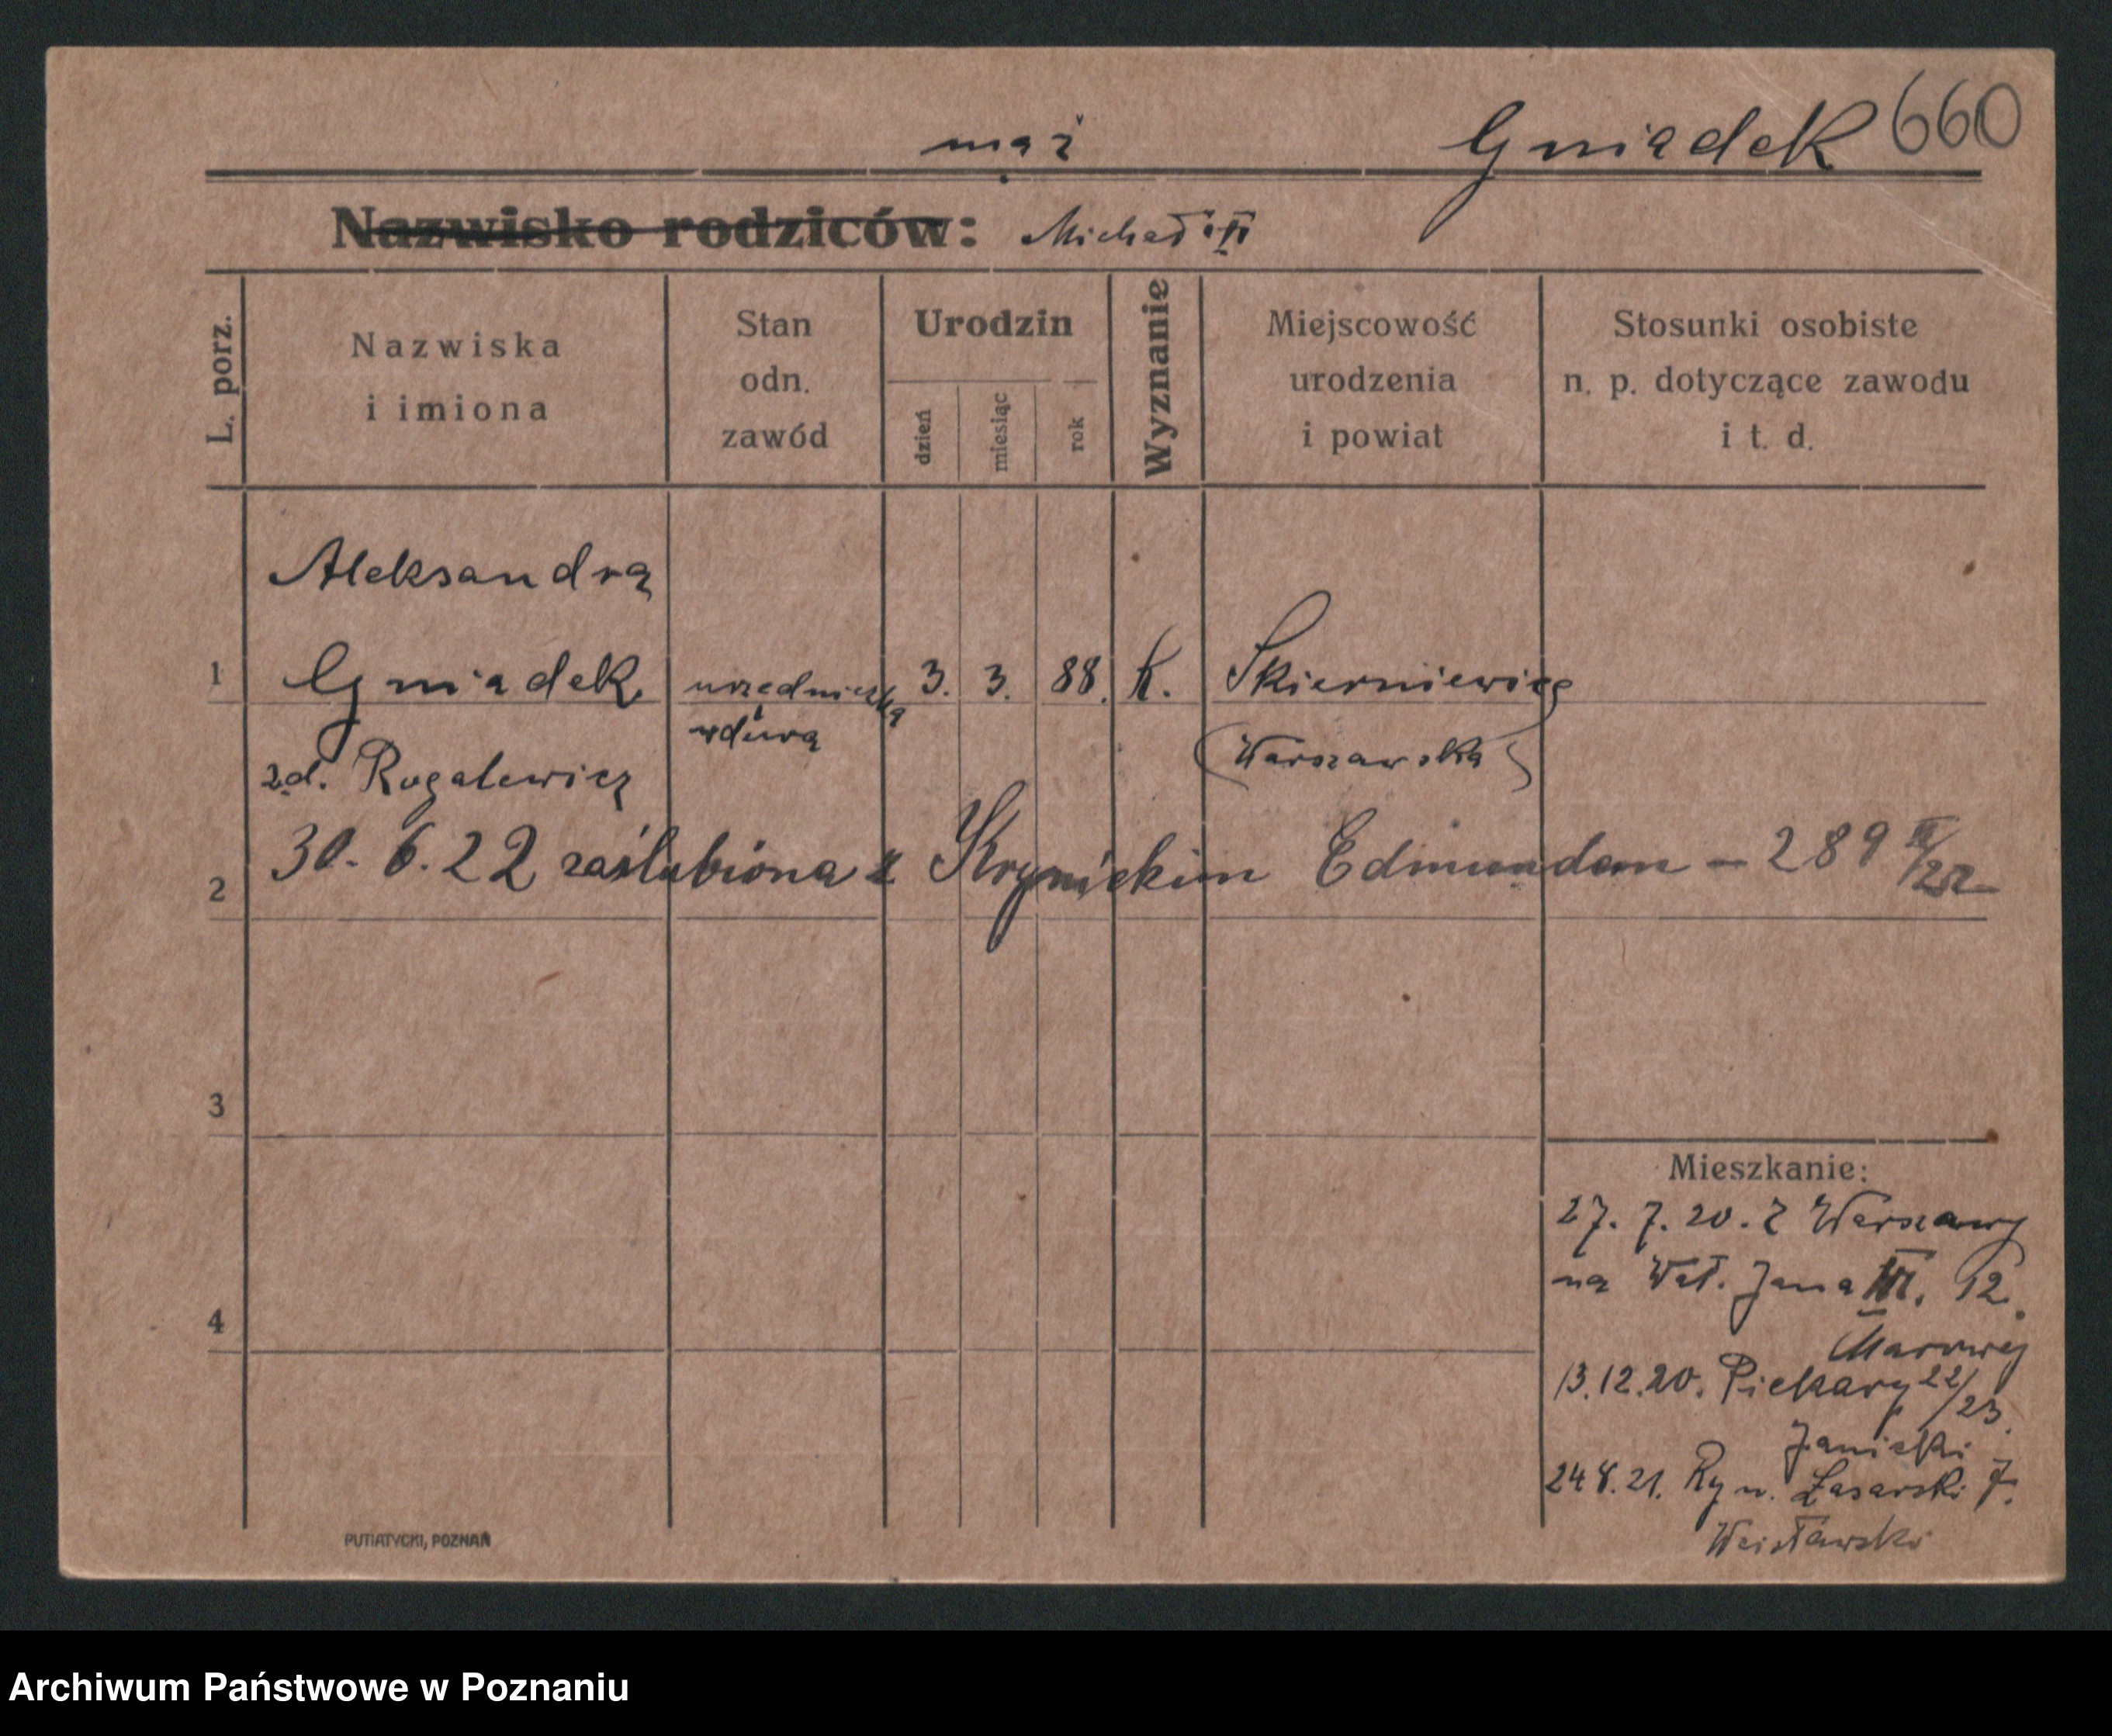 mąż Gniadek 660
Nazwisko rodziców: Michał
L. porz.
Nazwiska i imiona
Stan odn. zawód
Urodzin
dzień miesiąc rok
Wyznanie
Miejscowość urodzenia i powiat
Stosunki osobiste n. p. dotyczące zawodu i t. d.
Aleksandra
1 Gniadek urzedniczka 3. 3. 88. k. Skierniewice
wdowa
zd. Rogalewicz (Warszawska)
2 30. 6. 22 zaślubiona z Krynickim Edmundem – 289
3
4
Mieszkanie:
27. 7. 20. z Warszawy
na Wał. Jana III. 12.
13.12.20. Piekary 22/23.
Janicki
24 8. 21. Ryn. Łasarski 7.
PUTIATYCKI, POZNAŃ
Archiwum Państwowe w Poznaniu